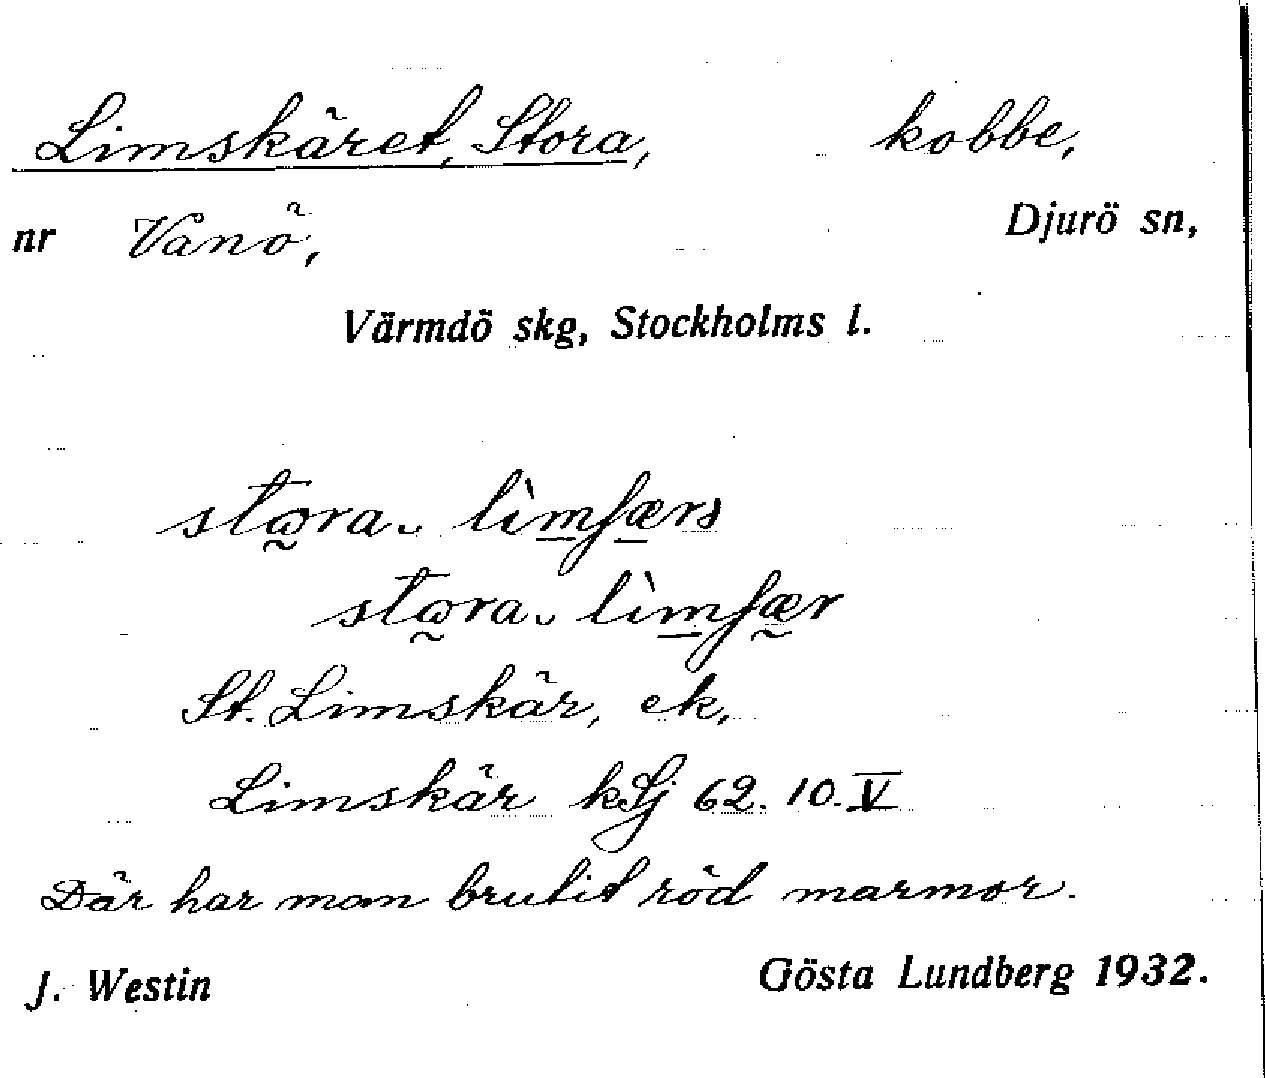 Limskäret, Stora, kobbe,
nr Vanö, Djurö sn,
Värmdö skg, Stockholms l.
St. Limskär, ek,
Limskär kSj 62. 10. V
Där har man brutit röd marmor.
J. Westin Gösta Lundberg 1932.